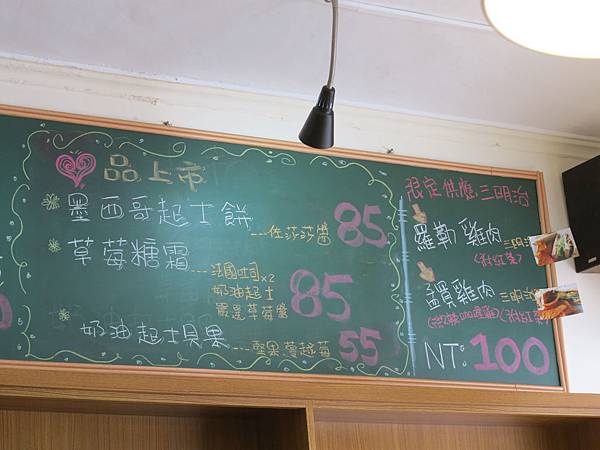 品上市
墨西哥起士餅
---佐莎莎醬 85
草莓糖霜
---法國吐司x2
奶油起士
嚴選草莓醬
85
奶油起士貝果
---堅果蔓越莓 55
限定供應三明治
羅勒雞肉 三明治
孟買雞肉 三明治
NT: 100